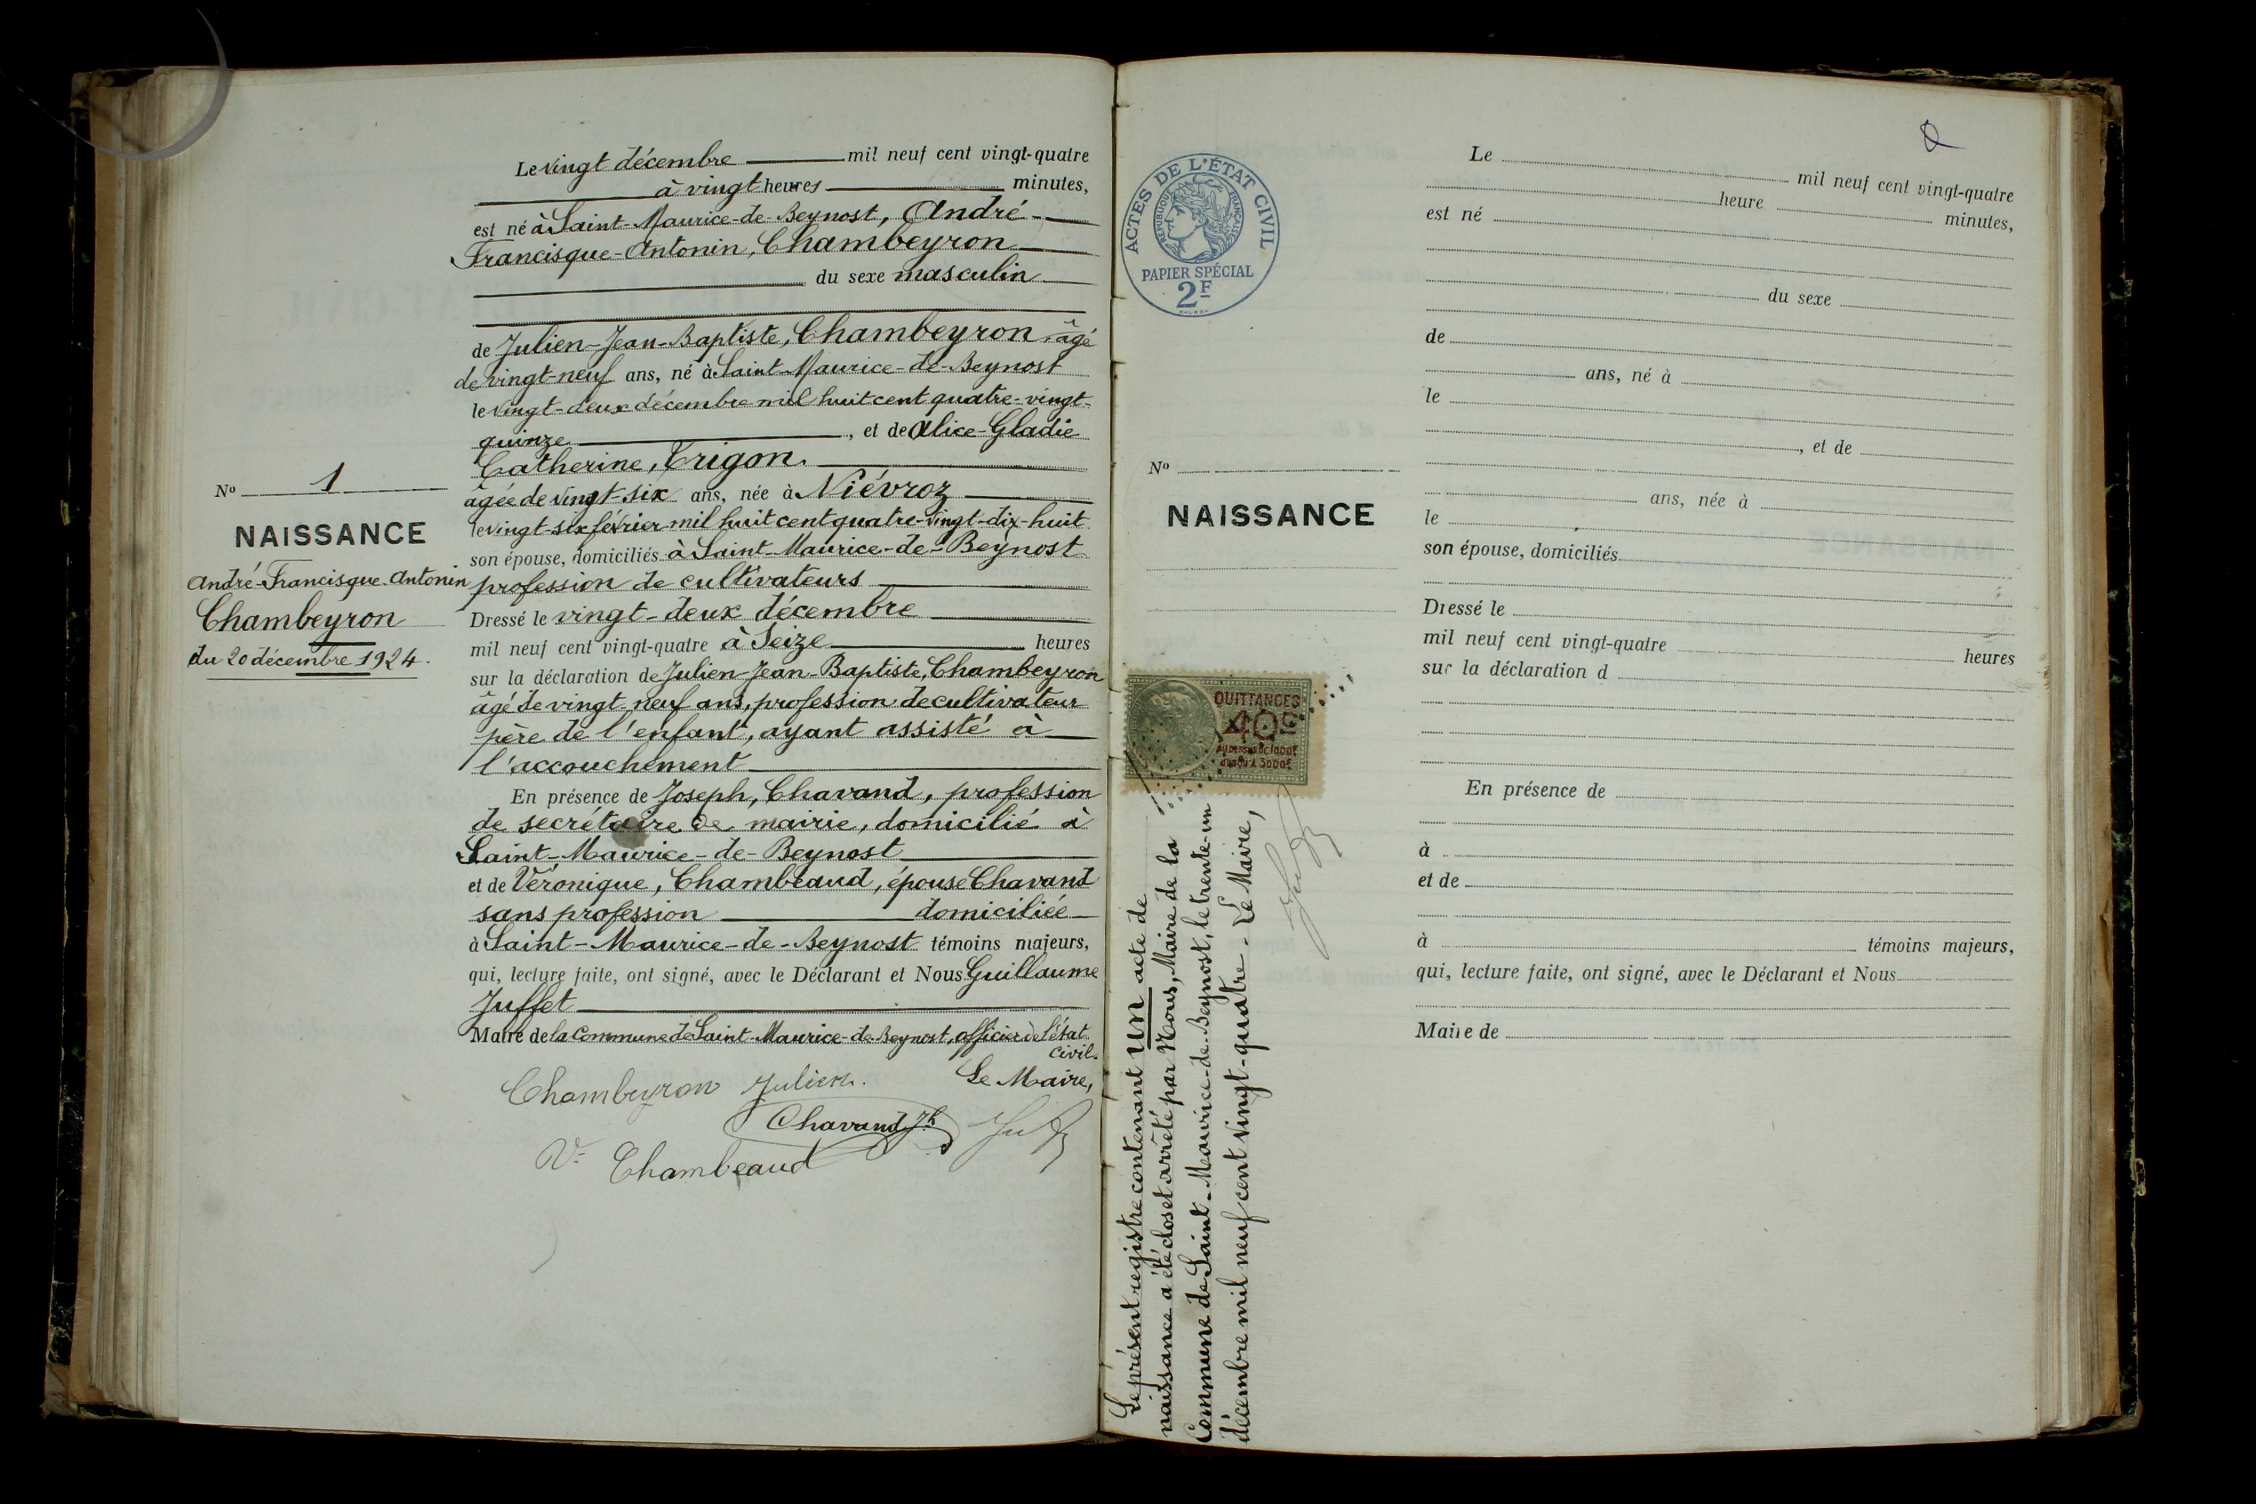 Le vingt décembre mil neuf cent vingt-quatre
à vingt heures minutes,
est né à Saint-Maurice-de-Beynost, André-
Francisque-Antonin, Chambeyron
du sexe masculin
de Julien-Jean-Baptiste, Chambeyron, âgé
de vingt-neuf ans, né à Saint-Maurice-de-Beynost
le vingt-deux décembre mil huit cent quatre-vingt-
quinze, et de Alice-Gladie
Catherine, Trigon.
âgée de vingt-six ans, née à Niévroz
le vingt-six février mil huit cent quatre-vingt-dix-huit
son épouse, domiciliés à Saint-Maurice-de-Beynost
profession de cultivateurs
Dressé le vingt-deux décembre
mil neuf cent vingt-quatre à Seize heures
sur la déclaration de Julien-Jean-Baptiste, Chambeyron
âgé de vingt-neuf ans, profession de cultivateur
père de l'enfant, ayant assisté à
l'accouchement
En présence de Joseph, Chavand, profession
de secrétaire de mairie, domicilié à
Saint-Maurice-de-Beynost
et de Véronique, Chambeaud, épouse Chavand
sans profession domiciliée
à Saint-Maurice-de-Beynost témoins majeurs,
qui, lecture faite, ont signé, avec le Déclarant et Nous Guillaume
Juffet
Maire de la Commune de Saint-Maurice-de-Beynost, officier de l'état
civil.
Le Maire,
Chambeyron Julien.
Chavand Jh
Vᵉ Chambeaud
No 1
NAISSANCE
André-Francisque-Antonin
Chambeyron
du 20 décembre 1924.
ACTES DE L'ÉTAT CIVIL
RÉPUBLIQUE FRANÇAISE
PAPIER SPÉCIAL
2F
No
NAISSANCE
QUITTANCES
40c
AU DESSUS DE 1000F
JUSQU'À 3000F
Le présent registre contenant un acte de
naissance a été clos et arrêté par Nous, Maire de la
Commune de Saint-Maurice-de-Beynost, le trente-un
décembre mil neuf cent vingt-quatre - Le Maire,
Le mil neuf cent vingt-quatre
heure minutes,
est né
du sexe
de
ans, né à
le
, et de
ans, née à
le
son épouse, domiciliés
Dressé le
mil neuf cent vingt-quatre heures
sur la déclaration d
En présence de
à
et de
à témoins majeurs,
qui, lecture faite, ont signé, avec le Déclarant et Nous
Maire de